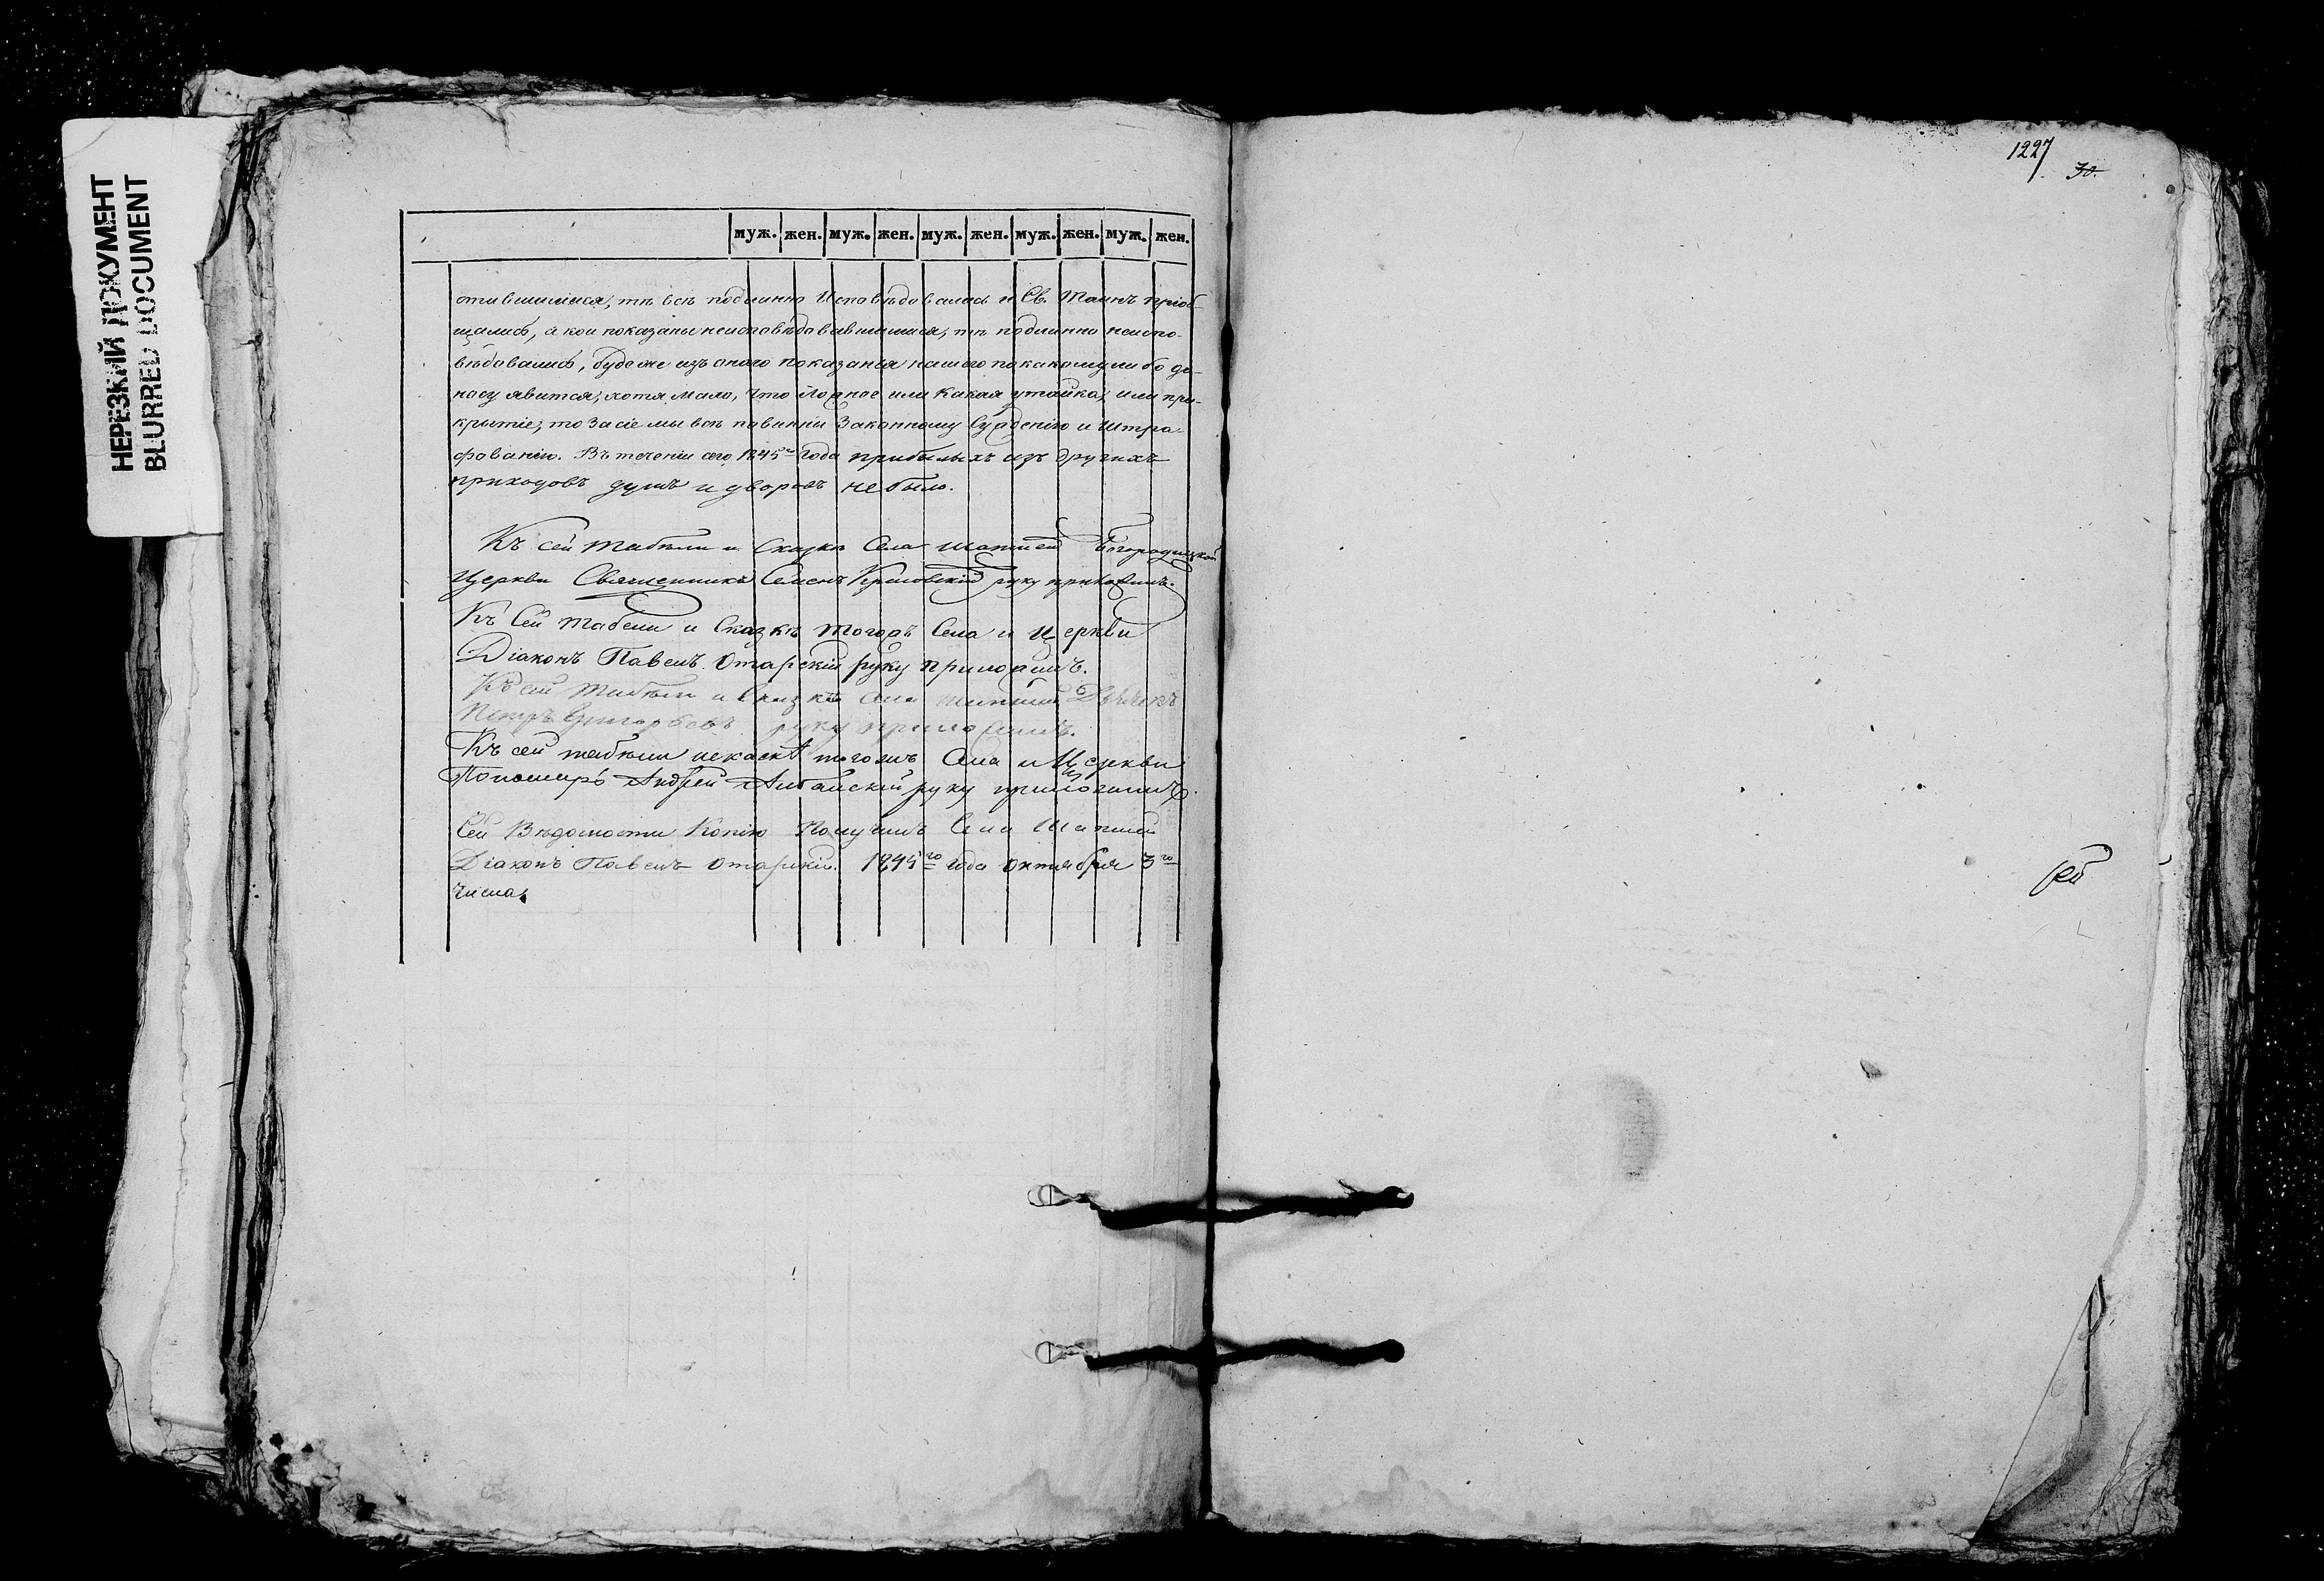 НЕРЕЗКИЙ ДОКУМЕНТ
BLURRED DOCUMENT
муж. жен. муж. жен. муж. жен. муж. жен. муж. жен.
тѣ всѣ подлинно Исповѣдовались и Св. Таинъ пріоб-
щались, а кои показаны неисповѣдовавшимися, тѣ подлинно неиспо-
вѣдовались, буде же изъ онаго показанья нашего по какому либо до-
носу явится, хотя мало, что ложное или какая утайка, или при-
крытіе, то за сіе мы всѣ повинны Законному Сужденію и штра-
фованію. Въ теченіи сего 1845го года прибылыхъ изъ другихъ
приходовъ душъ и дворовъ небыло.
Къ сей табели и Сказкѣ Села Богородицкой
Церкви Священникъ Семенъ руку приложилъ.
Къ Сей табели и Сказкѣ тогожъ Села и Церкви
Діаконъ Павелъ Отарскій руку приложилъ.
Къ сей табели и Сказкѣ села Дьячекъ
Петръ Григорьевъ руку приложилъ.
Къ сей табели тогожъ Села и Церкви
Пономарь Андрей руку приложилъ.
Сей Вѣдомости Копію Получилъ Села
Діаконъ Павелъ Отарскій. 1845го года октября 3го
числа.
1227
30.